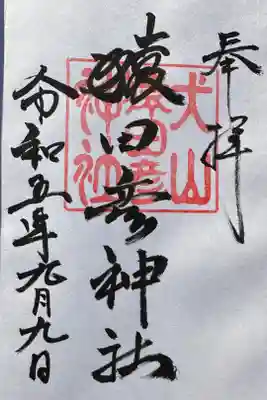 奉拝
猿田彦神社
令和五年九月九日
犬山
猿田彦
神社